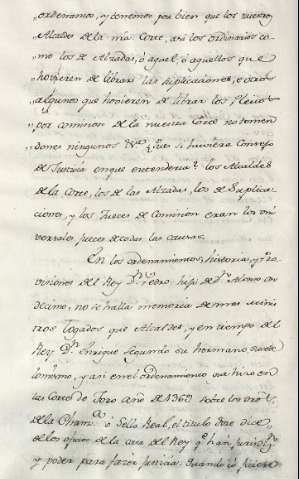 „ordenamos, y tenemos por bien que los nuestros
„Alcaldes de la ntra. Corte, asi los ordinarios co-
„mo los de Alzadas, ó aquel, ó aquellos que
„hovieren de librar las suplicaciones, e otros
„algunos que hovieren de librar los Pleitos
„por comision de la nuestra Corte no tomen
„dones ningunos &c.ª que si huviera Consejo
de Justicia en que entenderia? los Alcaldes
de la Corte, los de las Alzadas, los de Suplica-
ciones, y los Jueces de Comision eran los uni-
versales jueces de todas las causas.
En los ordenamientos, historias, y pro-
visiones del Rey Dn. Pedro hijo de Dn. Alonso on-
decimo, no se halla memoria de mas minis-
tros togados que Alcaldes, y en tiempo del
Rey Dn. Enrique segundo su hermano sucede
lo mismo, y an en el ordenamiento que hizo en
las Cortes de Toro año de 1369 sobre los
de la Chan.ª ó Sello Real, el titulo doze dice
de los oficios de la casa del Rey q.e han
y poder para fazer justicia. Quando lo